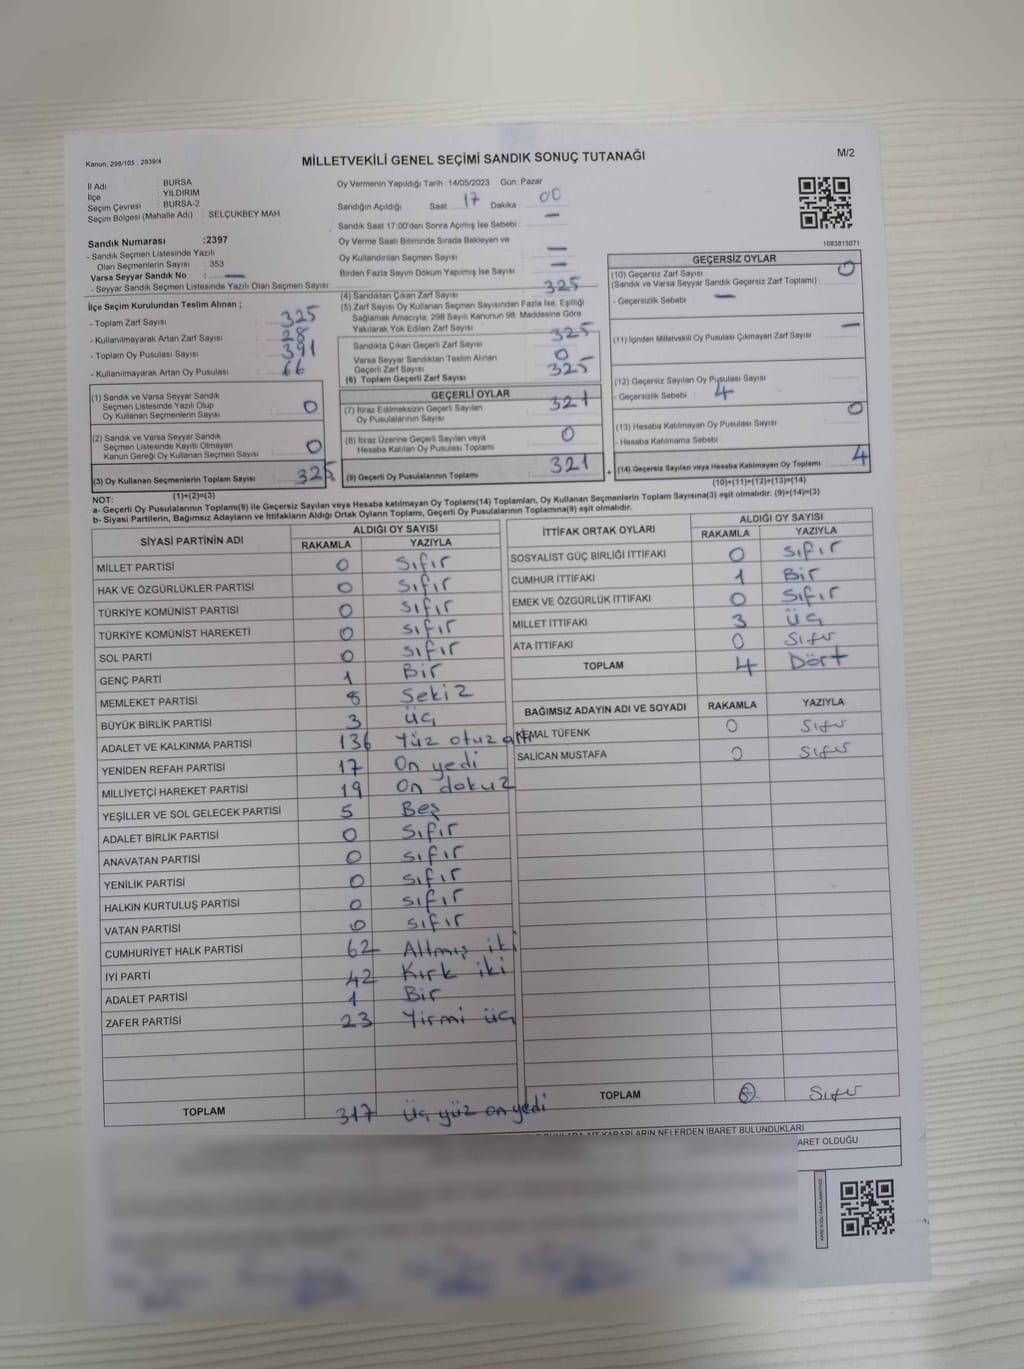 Kanun, 298/105 , 2839/4
MİLLETVEKİLİ GENEL SEÇİMİ SANDIK SONUÇ TUTANAĞI
M/2
İl Adı : BURSA
İlçe : YILDIRIM
Seçim Çevresi : BURSA-2
Seçim Bölgesi (Mahalle Adı) : SELÇUKBEY MAH
Sandık Numarası :2397
- Sandık Seçmen Listesinde Yazılı
Olan Seçmenlerin Sayısı : 353
Varsa Seyyar Sandık No : —
- Seyyar Sandık Seçmen Listesinde Yazılı Olan Seçmen Sayısı
İlçe Seçim Kurulundan Teslim Alınan ;
- Toplam Zarf Sayısı 325
- Kullanılmayarak Artan Zarf Sayısı 28
- Toplam Oy Pusulası Sayısı 391
- Kullanılmayarak Artan Oy Pusulası 66
(1) Sandık ve Varsa Seyyar Sandık
Seçmen Listesinde Yazılı Olup
Oy Kullanan Seçmenlerin Sayısı 0
(2) Sandık ve Varsa Seyyar Sandık
Seçmen Listesinde Kayıtlı Olmayan
Kanun Gereği Oy Kullanan Seçmen Sayısı 0
(3) Oy Kullanan Seçmenlerin Toplam Sayısı 325
(1)+(2)=(3)
Oy Vermenin Yapıldığı Tarih :14/05/2023 Gün: Pazar
Sandığın Açıldığı Saat 17 Dakika 00
Sandık Saat 17:00'den Sonra Açımış İse Sebebi : —
Oy Verme Saati Bitiminde Sırada Bekleyen ve
Oy Kullandırılan Seçmen Sayısı —
Birden Fazla Sayım Döküm Yapılmış İse Sayısı —
(4) Sandıktan Çıkan Zarf Sayısı 325
(5) Zarf Sayısı Oy Kullanan Seçmen Sayısından Fazla İse, Eşitliği
Sağlamak Amacıyla, 298 Sayılı Kanunun 98. Maddesine Göre
Yakılarak Yok Edilen Zarf Sayısı
Sandıkta Çıkan Geçerli Zarf Sayısı 325
Varsa Seyyar Sandıktan Teslim Alınan
Geçerli Zarf Sayısı 0
(6) Toplam Geçerli Zarf Sayısı 325
GEÇERLİ OYLAR
(7) İtiraz Edilmeksizin Geçerli Sayılan
Oy Pusulalarının Sayısı 321
(8) İtiraz Üzerine Geçerli Sayılan veya
Hesaba Katılan Oy Pusulası Toplamı 0
(9) Geçerli Oy Pusulalarının Toplamı 321
1083815071
GEÇERSİZ OYLAR
(10) Geçersiz Zarf Sayısı 0
(Sandık ve Varsa Seyyar Sandık Geçersiz Zarf Toplamı) :
- Geçersizlik Sebebi : —
(11) İçinden Milletvekili Oy Pusulası Çıkmayan Zarf Sayısı —
(12) Geçersiz Sayılan Oy Pusulası Sayısı
- Geçersizlik Sebebi : 4
(13) Hesaba Katılmayan Oy Pusulası Sayısı 0
- Hesaba Katılmama Sebebi
+ (14) Geçersiz Sayılan veya Hesaba Katılmayan Oy Toplamı 4
(10)+(11)+(12)+(13)=(14)
NOT:
a- Geçerli Oy Pusulalarının Toplamı(9) ile Geçersiz Sayılan veya Hesaba katılmayan Oy Toplamı(14) Toplamları, Oy Kullanan Seçmenlerin Toplam Sayısına(3) eşit olmalıdır. (9)+(14)=(3)
b- Siyasi Partilerin, Bağımsız Adayların ve İttifakların Aldığı Ortak Oyların Toplamı, Geçerli Oy Pusulalarının Toplamına(9) eşit olmalıdır.
SİYASİ PARTİNİN ADI ALDIĞI OY SAYISI
RAKAMLA YAZIYLA
MİLLET PARTİSİ 0 Sıfır
HAK VE ÖZGÜRLÜKLER PARTİSİ 0 Sıfır
TÜRKİYE KOMÜNİST PARTİSİ 0 Sıfır
TÜRKİYE KOMÜNİST HAREKETİ 0 Sıfır
SOL PARTİ 0 Sıfır
GENÇ PARTİ 1 Bir
MEMLEKET PARTİSİ 8 Sekiz
BÜYÜK BİRLİK PARTİSİ 3 üç
ADALET VE KALKINMA PARTİSİ 136 Yüz otuz altı
YENİDEN REFAH PARTİSİ 17 On yedi
MİLLİYETÇİ HAREKET PARTİSİ 19 On dokuz
YEŞİLLER VE SOL GELECEK PARTİSİ 5 Beş
ADALET BİRLİK PARTİSİ 0 Sıfır
ANAVATAN PARTİSİ 0 Sıfır
YENİLİK PARTİSİ 0 Sıfır
HALKIN KURTULUŞ PARTİSİ 0 Sıfır
VATAN PARTİSİ 0 Sıfır
CUMHURİYET HALK PARTİSİ 62 Altmış iki
İYİ PARTİ 42 Kırk iki
ADALET PARTİSİ 1 Bir
ZAFER PARTİSİ 23 Yirmi üç
TOPLAM 317 Üç yüz on yedi
İTTİFAK ORTAK OYLARI ALDIĞI OY SAYISI
RAKAMLA YAZIYLA
SOSYALİST GÜÇ BİRLİĞİ İTTİFAKI 0 Sıfır
CUMHUR İTTİFAKI 1 Bir
EMEK VE ÖZGÜRLÜK İTTİFAKI 0 Sıfır
MİLLET İTTİFAKI 3 üç
ATA İTTİFAKI 0 Sıfır
TOPLAM 4 Dört
BAĞIMSIZ ADAYIN ADI VE SOYADI RAKAMLA YAZIYLA
KEMAL TÜFENK 0 Sıfır
SALİCAN MUSTAFA 0 Sıfır
TOPLAM 0 Sıfır
KARARLARIN NELERDEN İBARET BULUNDUKLARI
ARET OLDUĞU